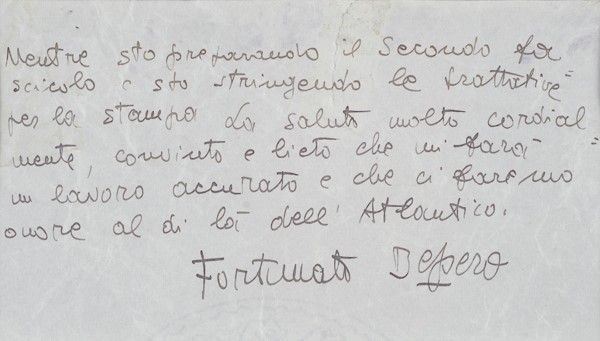 Mentre sto preparando il secondo fa
scicolo e sto stringendo le trattative=
per la stampa La saluto molto cordial
mente, convinto e lieto che mi farà =
un lavoro accurato e che ci faremo
onore al di là dell' Atlantico.
Fortunato Depero